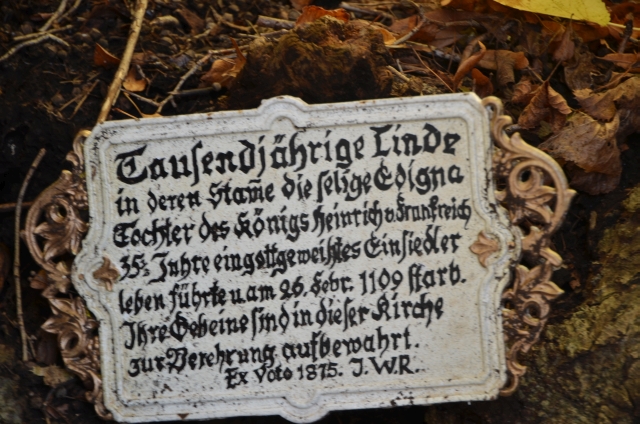 Tausendjährige Linde
in deren Stame die selige Edigna
Tochter des Königs Heinrich v. Frankreich
35½ Jahre ein gottgeweihtes Einsiedler
leben führte u. am 26. Febr. 1109 starb.
Ihre Gebeine sind in dieser Kirche
zur Verehrung aufbewahrt.
Ex Voto 1875. J.W.R.